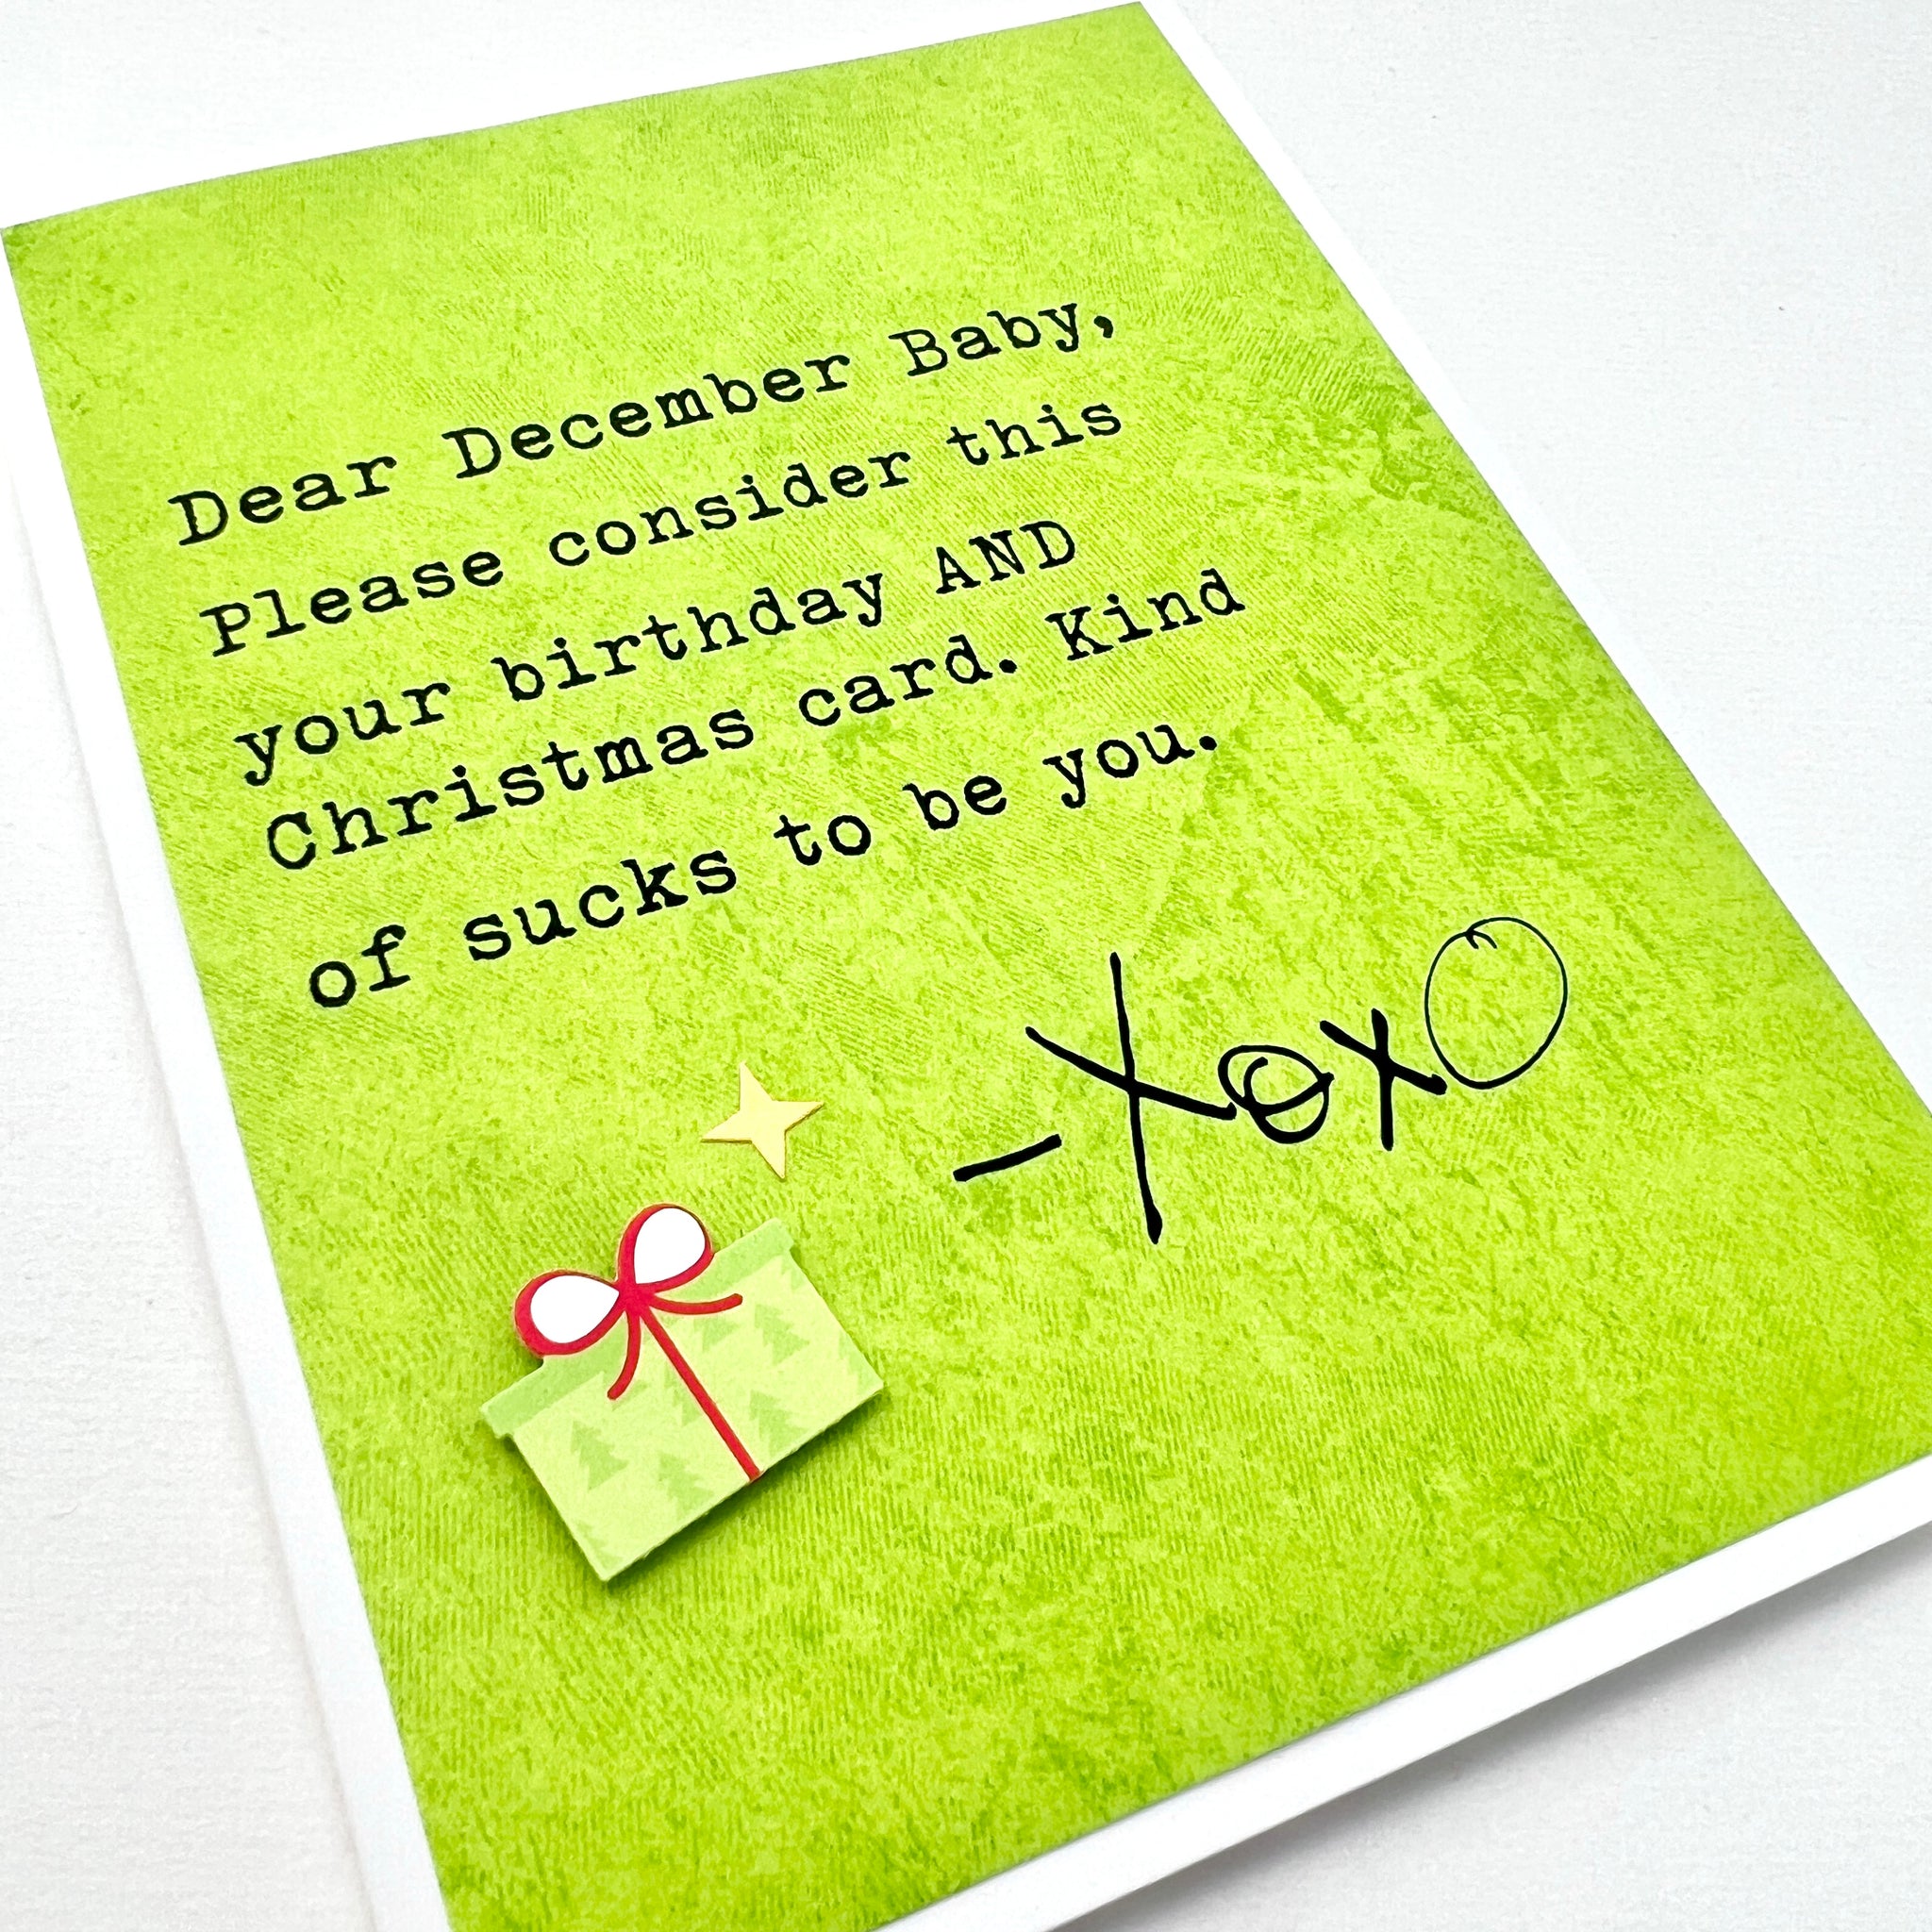 Dear December Baby,
Please consider this
your birthday AND
Christmas card. Kind
of sucks to be you.
-XoxO